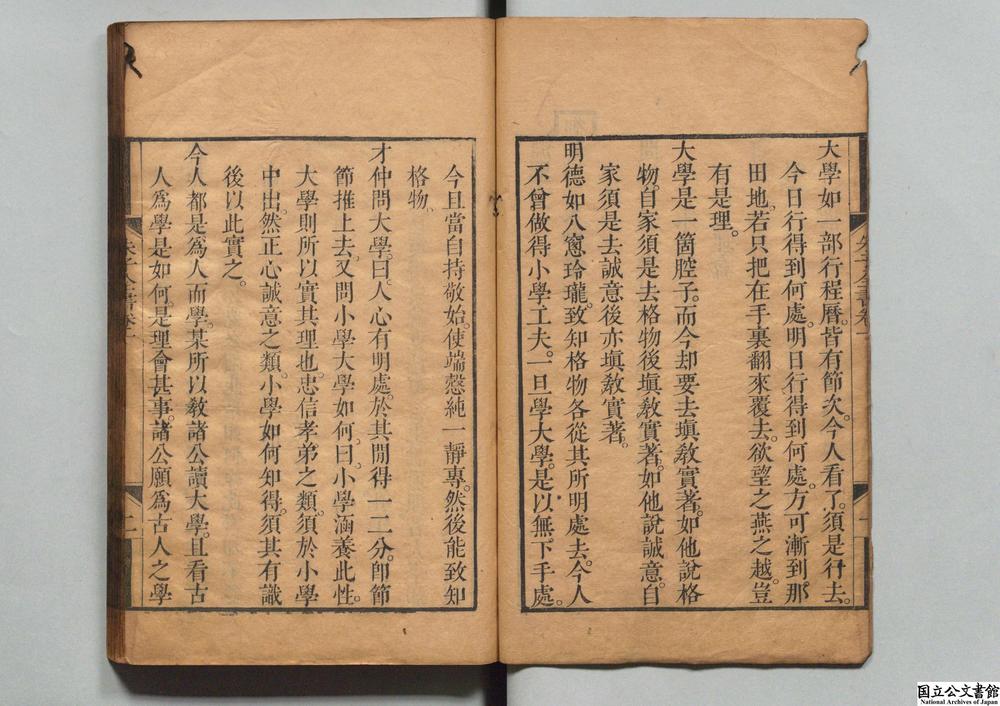 大學如一部行程曆。皆有節次。今人看了。須是行去。
今日行得到何處。明日行得到何處。方可漸到那
田地。若只把在手裏翻來覆去。欲望之燕之越。豈
有是理。
大學是一箇腔子。而今却要去塡敎實著。如他說格
物。自家須是去格物後塡敎實著。如他說誠意。自
家須是去誠意後亦塡敎實著。
明德如八窻玲瓏。致知格物各從其所明處去。今人
不曾做得小學工夫。一旦學大學。是以無下手處。
今且當自持敬始。使端慤純一靜專。然後能致知
格物、
才仲問大學。曰。人心有明處。於其閒得一二分。卽節
節推上去。又問小學大學如何。曰。小學涵養此性。
大學則所以實其理也。忠信孝弟之類。須於小學
中出。然正心誠意之類。小學如何知得。須其有識
後以此實之。
今人都是爲人而學。某所以敎諸公讀大學。且看古
人爲學是如何。是理會甚事。諸公願爲古人之學
朱子全書卷
二
国立公文書館
National Archives of Japan